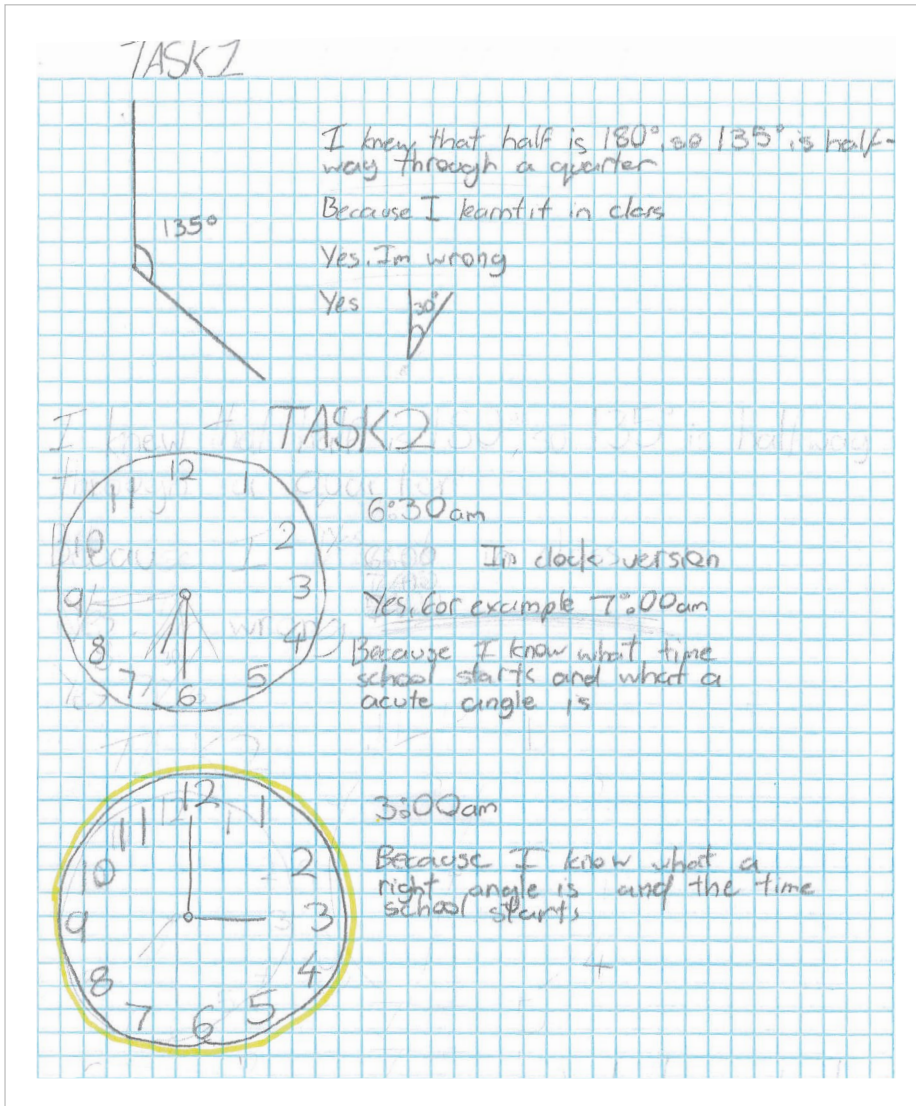 TASK1
I knew that half is 180°, so 135° is half-
way through a quarter
135°
Because I learnt it in class
Yes. Im wrong
Yes
30°
TASK2
12
1
2
3
4
5
6
7
8
9
10
11
6:30am
In clock version
Yes. for example 7:00am
Because I know what time
school starts and what a
acute angle is
12
1
2
3
4
5
6
7
8
9
10
11
3:00am
Because I know what a
right angle is and the time
school starts